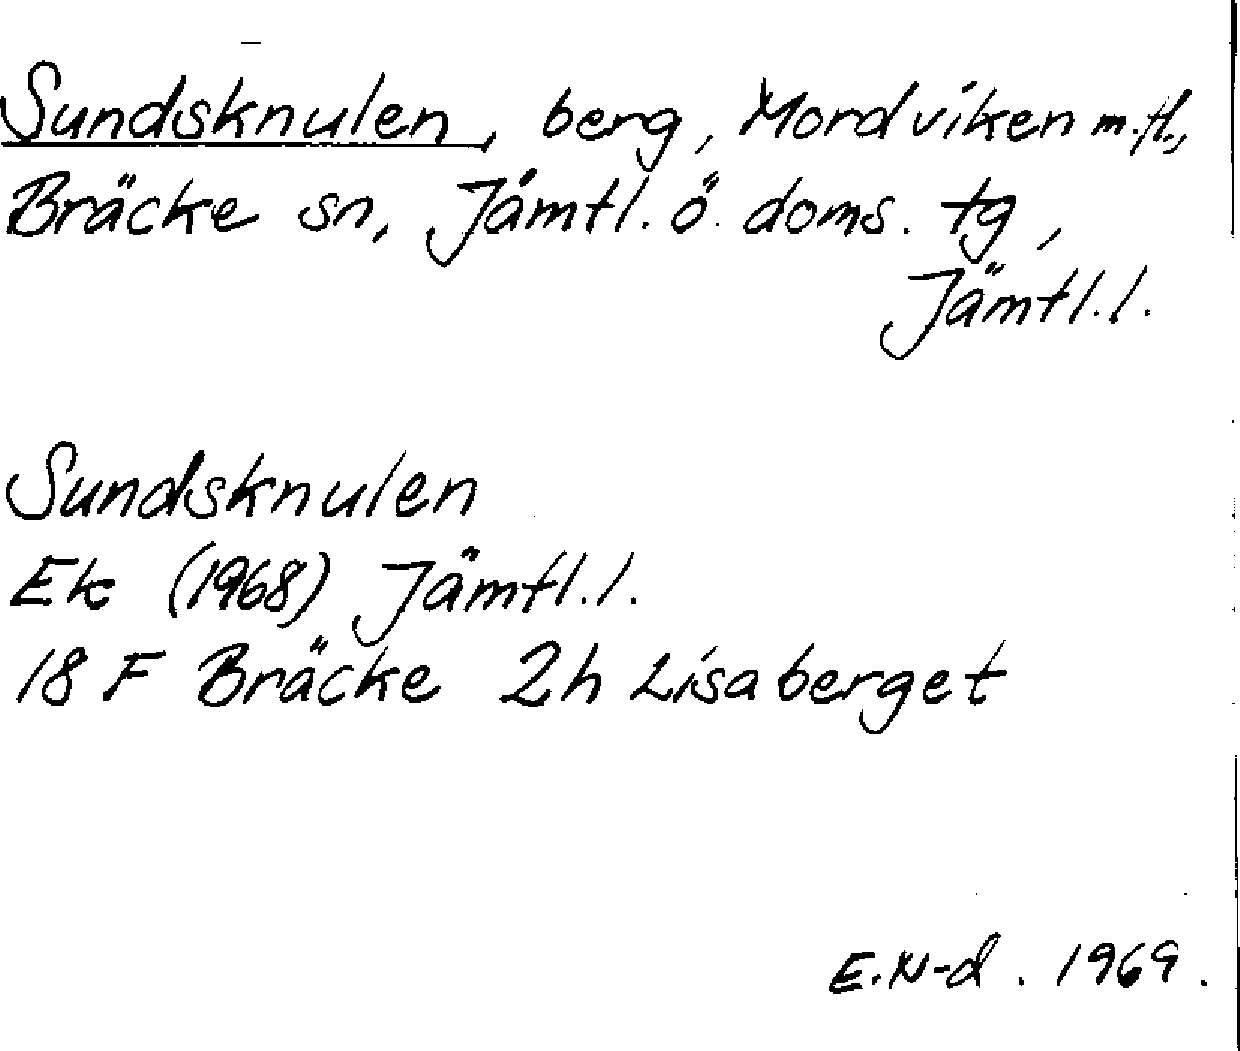 Sundsknulen, berg, Mordviken m.fl.,
Bräcke sn, Jämtl. ö. doms. tg,
Jämtl.l.
Sundsknulen
Ek (1968) Jämtl.l.
18 F Bräcke 2h Lisaberget
E.N-d. 1969.